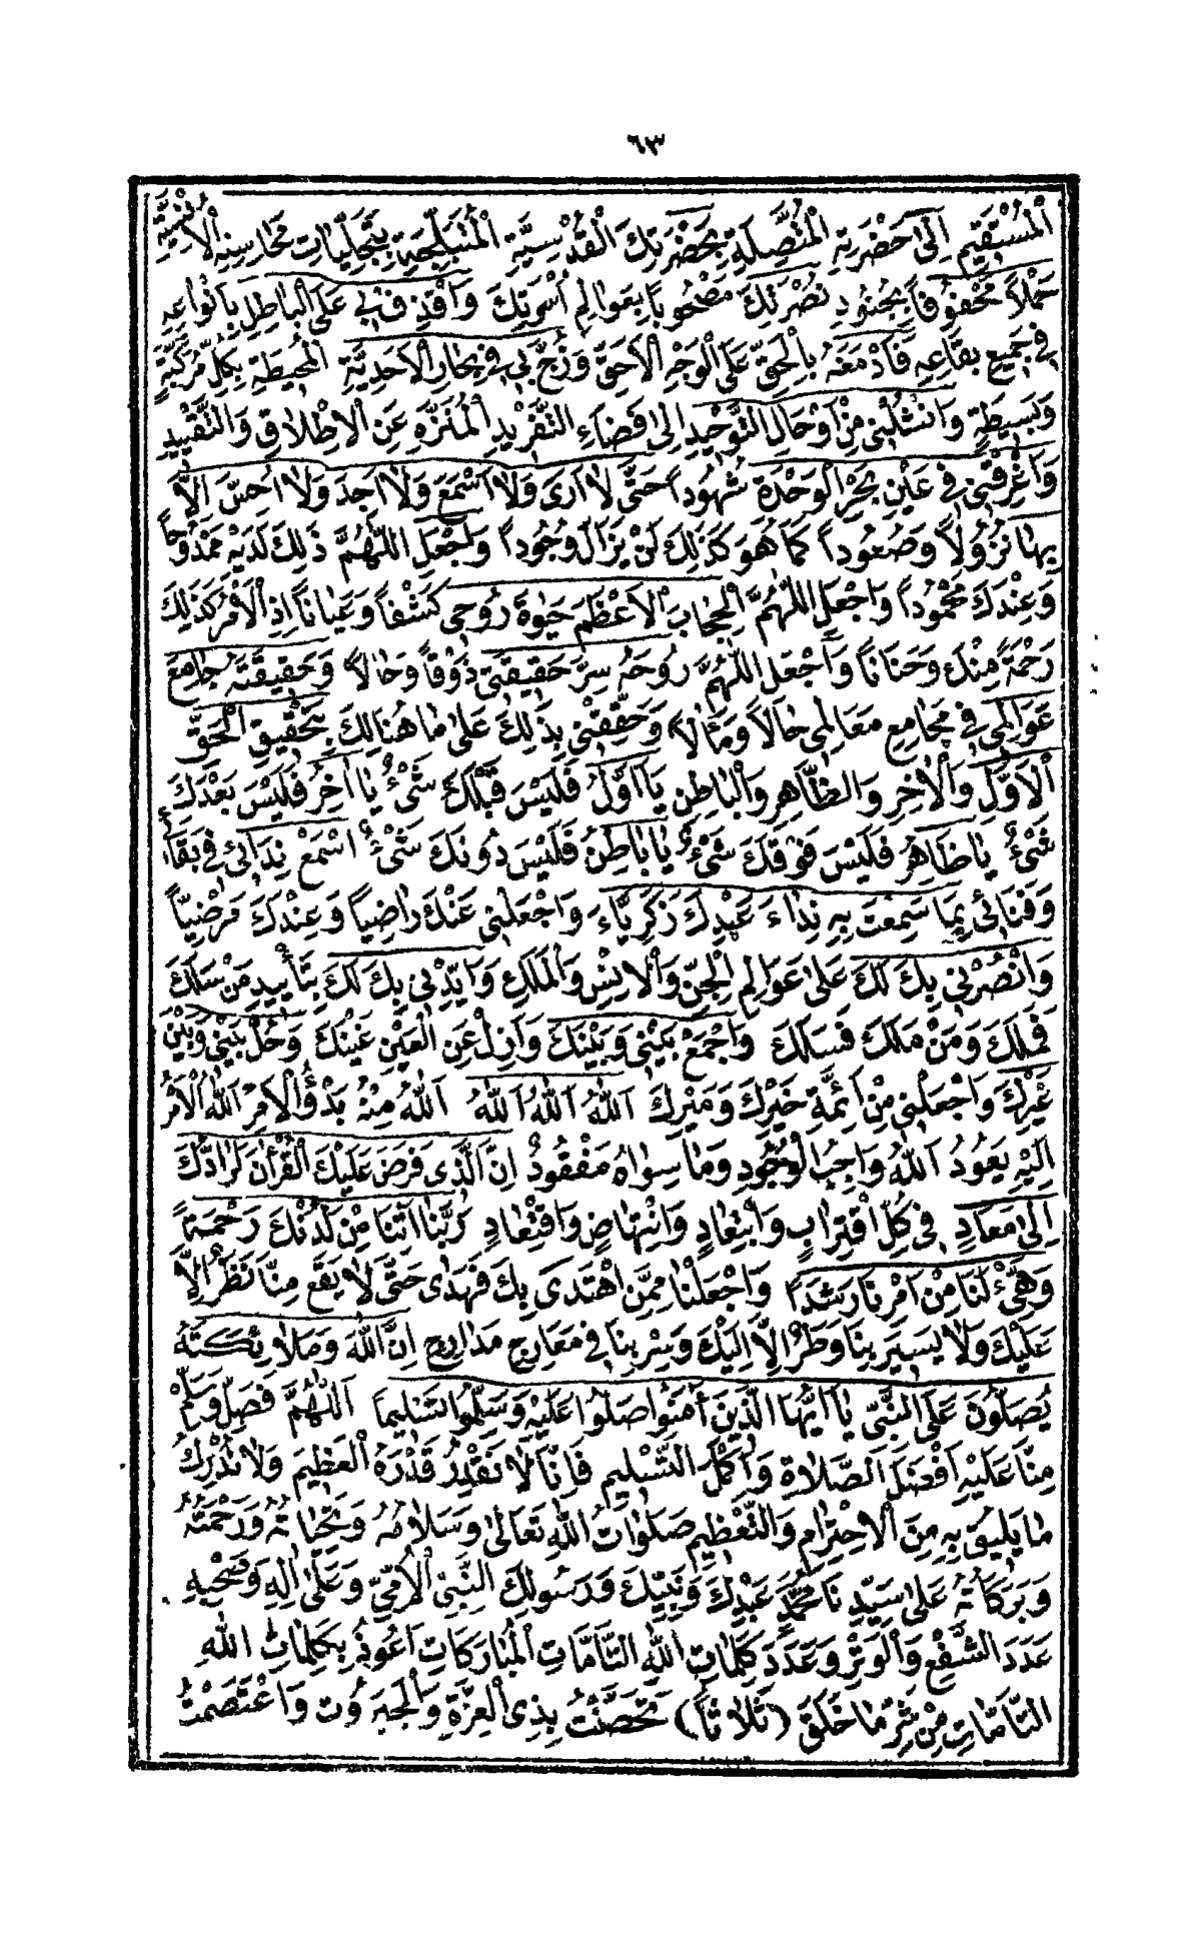 ٦٣
الْمُسْتَقِيمِ اِلٰى حَضْرَتِهِ الْمُتَّصِلَةِ بِحَضْرَتِكَ الْقُدْسِيَّةِ الْمُتَبَلِّجَةِ بِتَجَلِّيَاتِ مَحَاسِنِهِ الْاُنْسِيَّةِ
حَمْلاً مَحْفُوفاً بِجُنُودِ نُصْرَتِكَ مَصْحُوباً بِعَوَالِمِ اُسْرَتِكَ وَاقْذِفْ بِي عَلَى الْبَاطِلِ بِاَنْوَاعِهِ
فِي جَمِيعِ بِقَاعِهِ فَاَدْمَغَهُ بِالْحَقِّ عَلَى الْوَجْهِ الْاَحَقِّ وَزُجَّ بِي فِي بِحَارِ الْاَحَدِيَّةِ الْمُحِيطَةِ بِكُلِّ مُرَكَّبَةٍ
وَبَسِيطَةٍ وَانْشُلْنِي مِنْ اَوْحَالِ التَّوْحِيدِ اِلٰى فَضَاءِ التَّفْرِيدِ الْمُنَزَّهِ عَنِ الْاِطْلَاقِ وَالتَّقْيِيدِ
وَاَغْرِقْنِي فِي عَيْنِ بَحْرِ الْوَحْدَةِ شُهُوداً حَتَّى لَا اَرَى وَلَا اَسْمَعَ وَلَا اَجِدَ وَلَا اُحِسَّ اِلَّا
بِهَا نُزُولاً وَصُعُوداً كَمَا هُوَ كَذٰلِكَ لَنْ يَزَالَ وُجُوداً وَاجْعَلِ اللّٰهُمَّ ذٰلِكَ لَدَيْهِ مَمْدُوحاً
وَعِنْدَكَ مَحْمُوداً وَاجْعَلِ اللّٰهُمَّ الْحِجَابَ الْاَعْظَمَ حَيٰوةَ رُوحِي كَشْفاً وَعِيَاناً اِذِ الْاَمْرُ كَذٰلِكَ
رَحْمَةً مِنْكَ وَحَنَاناً وَاجْعَلِ اللّٰهُمَّ رُوحَهُ سِرَّ حَقِيقَتِي ذَوْقاً وَحَالاً وَحَقِيقَتَهُ جَامِعَ
عَوَالِمِي فِي مَجَامِعِ مَعَالِمِي حَالاً وَمَآلاً وَحَقِّقْنِي بِذٰلِكَ عَلٰى مَا هُنَالِكَ بِتَحْقِيقِ الْحَقِّ
الْاَوَّلِ وَالْاٰخِرِ وَالظَّاهِرِ وَالْبَاطِنِ يَا اَوَّلُ فَلَيْسَ قَبْلَكَ شَيْءٌ يَا اٰخِرُ فَلَيْسَ بَعْدَكَ
شَيْءٌ يَا ظَاهِرُ فَلَيْسَ فَوْقَكَ شَيْءٌ يَا بَاطِنُ فَلَيْسَ دُونَكَ شَيْءٌ اسْمَعْ نِدَائِي فِي بَقَائِي
وَفَنَائِي بِمَا سَمِعْتَ بِهِ نِدَاءَ عَبْدِكَ زَكَرِيَّاءَ وَاجْعَلْنِي عَنْكَ رَاضِياً وَعِنْدَكَ مَرْضِيّاً
وَانْصُرْنِي بِكَ لَكَ عَلٰى عَوَالِمِ الْجِنِّ وَالْاِنْسِ وَالْمَلَكِ وَاَيِّدْنِي بِكَ لَكَ بِتَأْيِيدِ مَنْ سَلَكَ
فَمَلَكَ وَمَنْ مَلَكَ فَسَلَكَ وَاجْمَعْ بَيْنِي وَبَيْنَكَ وَاَزِلْ عَنِ الْعَيْنِ غَيْنَكَ وَحُلْ بَيْنِي وَبَيْنَ
غَيْرِكَ وَاجْعَلْنِي مِنْ اَئِمَّةِ خَيْرِكَ وَمَيْرِكَ اَللّٰهُ اَللّٰهُ اَللّٰهُ اَللّٰهُ مِنْهُ بَدْؤُ الْاَمْرِ اَللّٰهُ الْاَمْرُ
اِلَيْهِ يَعُودُ اَللّٰهُ وَاجِبُ الْوُجُودِ وَمَا سِوَاهُ مَفْقُودٌ اِنَّ الَّذِي فَرَضَ عَلَيْكَ الْقُرْاٰنَ لَرَادُّكَ
اِلٰى مَعَادٍ فِي كُلِّ اقْتِرَابٍ وَابْتِعَادٍ وَانْتِهَاضٍ وَاقْتِعَادٍ رَبَّنَا اٰتِنَا مِنْ لَدُنْكَ رَحْمَةً
وَهَيِّءْ لَنَا مِنْ اَمْرِنَا رَشَداً وَاجْعَلْنَا مِمَّنِ اهْتَدَى بِكَ فَهَدٰى حَتَّى لَا يَقَعَ مِنَّا نَظَرٌ اِلَّا
عَلَيْكَ وَلَا يَسِيرَ بِنَا وَطَرٌ اِلَّا اِلَيْكَ وَسِرْ بِنَا فِي مَعَارِجِ مَدَارِجِ اِنَّ اللّٰهَ وَمَلَائِكَتَهُ
يُصَلُّونَ عَلَى النَّبِيِّ يَا اَيُّهَا الَّذِينَ اٰمَنُوا صَلُّوا عَلَيْهِ وَسَلِّمُوا تَسْلِيماً اَللّٰهُمَّ فَصَلِّ وَسَلِّمْ
مِنَّا عَلَيْهِ اَفْضَلَ الصَّلَاةِ وَاَكْمَلَ التَّسْلِيمِ فَاِنَّا لَا نَقْدِرُ قَدْرَهُ الْعَظِيمَ وَلَا نُدْرِكُ
مَا يَلِيقُ بِهِ مِنَ الْاِحْتِرَامِ وَالتَّعْظِيمِ صَلَوَاتُ اللّٰهِ تَعَالٰى وَسَلَامُهُ وَتَحِيَّاتُهُ وَرَحْمَتُهُ
وَبَرَكَاتُهُ عَلٰى سَيِّدِنَا مُحَمَّدٍ عَبْدِكَ وَنَبِيِّكَ وَرَسُولِكَ النَّبِيِّ الْاُمِّيِّ وَعَلٰى اٰلِهِ وَصَحْبِهِ
عَدَدَ الشَّفْعِ وَالْوَتْرِ وَعَدَدَ كَلِمَاتِ اللّٰهِ التَّامَّاتِ الْمُبَارَكَاتِ اَعُوذُ بِكَلِمَاتِ اللّٰهِ
التَّامَّاتِ مِنْ شَرِّ مَا خَلَقَ (ثَلَاثاً) تَحَصَّنْتُ بِذِي الْعِزَّةِ وَالْجَبَرُوتِ وَاعْتَصَمْتُ